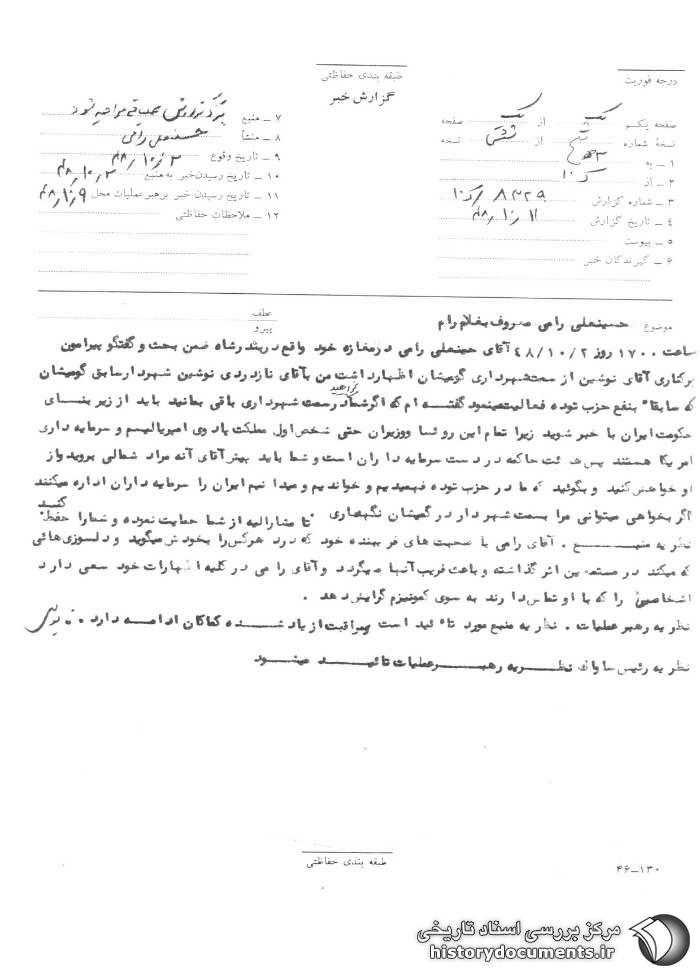 درجه فوریت
طبقه بندی حفاظتی
گزارش خبر
صفحه یکم از یک صفحه
نسخهٔ شماره پنج از شش نسخه
۱ ـ به ۳۴۱
۲ ـ از ک ۱۰
۳ ـ شماره گزارش ۸۳۲۹ / ک ۱۰
۴ ـ تاریخ گزارش ۴۸/۱۰/۱۱
۵ ـ پیوست
۶ ـ گیرندگان خبر
۷ ـ منبع
۸ ـ منشأ حسینعلی رامی
۹ ـ تاریخ وقوع ۴۸/۱۰/۲
۱۰ ـ تاریخ رسیدن خبر به منبع ۴۸/۱۰/۲
۱۱ ـ تاریخ رسیدن خبر برهبر عملیات محل ۴۸/۱۰/۹
۱۲ ـ ملاحظات حفاظتی
موضوع حسینعلی رامی معروف بغلام رام
عطف
پیرو
ساعت ۱۷۰۰ روز ۴۸/۱۰/۲ آقای حسینعلی رامی در مغازه خود واقع در بندر شاه ضمن بحث و گفتگو پیرامون
برکناری آقای نوشین از سمت شهرداری گومیشان اظهار داشت من بآقای نازدردی نوشین شهردار سابق گومیشان
که سابقا" بنفع حزب توده فعالیت مینمود گفته ام که اگر شما در سمت شهرداری باقی بمانید باید از زیر بنای
بخواهید
حکومت ایران با خبر شوید زیرا تمام این روسا و وزیران حتی شخص اول مملکت یادوی امپریالیسم و سرمایه داری
امریکا هستند پس هیئت حاکمه در دست سرمایه داران است و شما باید پیش آقای آنه مراد شمالی بروید و از
او خواهش کنید و بگوئید که ما در حزب توده فهمیدیم و خواندیم و میدانیم ایران را سرمایه داران اداره میکنند
اگر بخواهی میتوانی مرا بسمت شهردار در گمیشان نگهداری . تا مشارالیه از شما حمایت نموده و شما را حفظ کنید
نظریه منبع . آقای رامی با صحبت های فریبنده خود که درد هرکس را بخودش میگوید و دلسوزی هائی
که میکند در مستمعین اثر گذاشته و باعث فریب آنها میگردد و آقای رامی در کلیه اظهارات خود سعی دارد
اشخاصی را که با او تماس دارند به سوی کمونیزم گرایش دهد .
نظریه رهبر عملیات . نظریه منبع مورد تائید است مراقبت از یاد شده کماکان ادامه دارد .
نظریه رئیس ساواک نظریه رهبر عملیات تائید میشود
طبقه بندی حفاظتی
۴۶ـ۱۳۰
مرکز بررسی اسناد تاریخی
historydocuments.ir